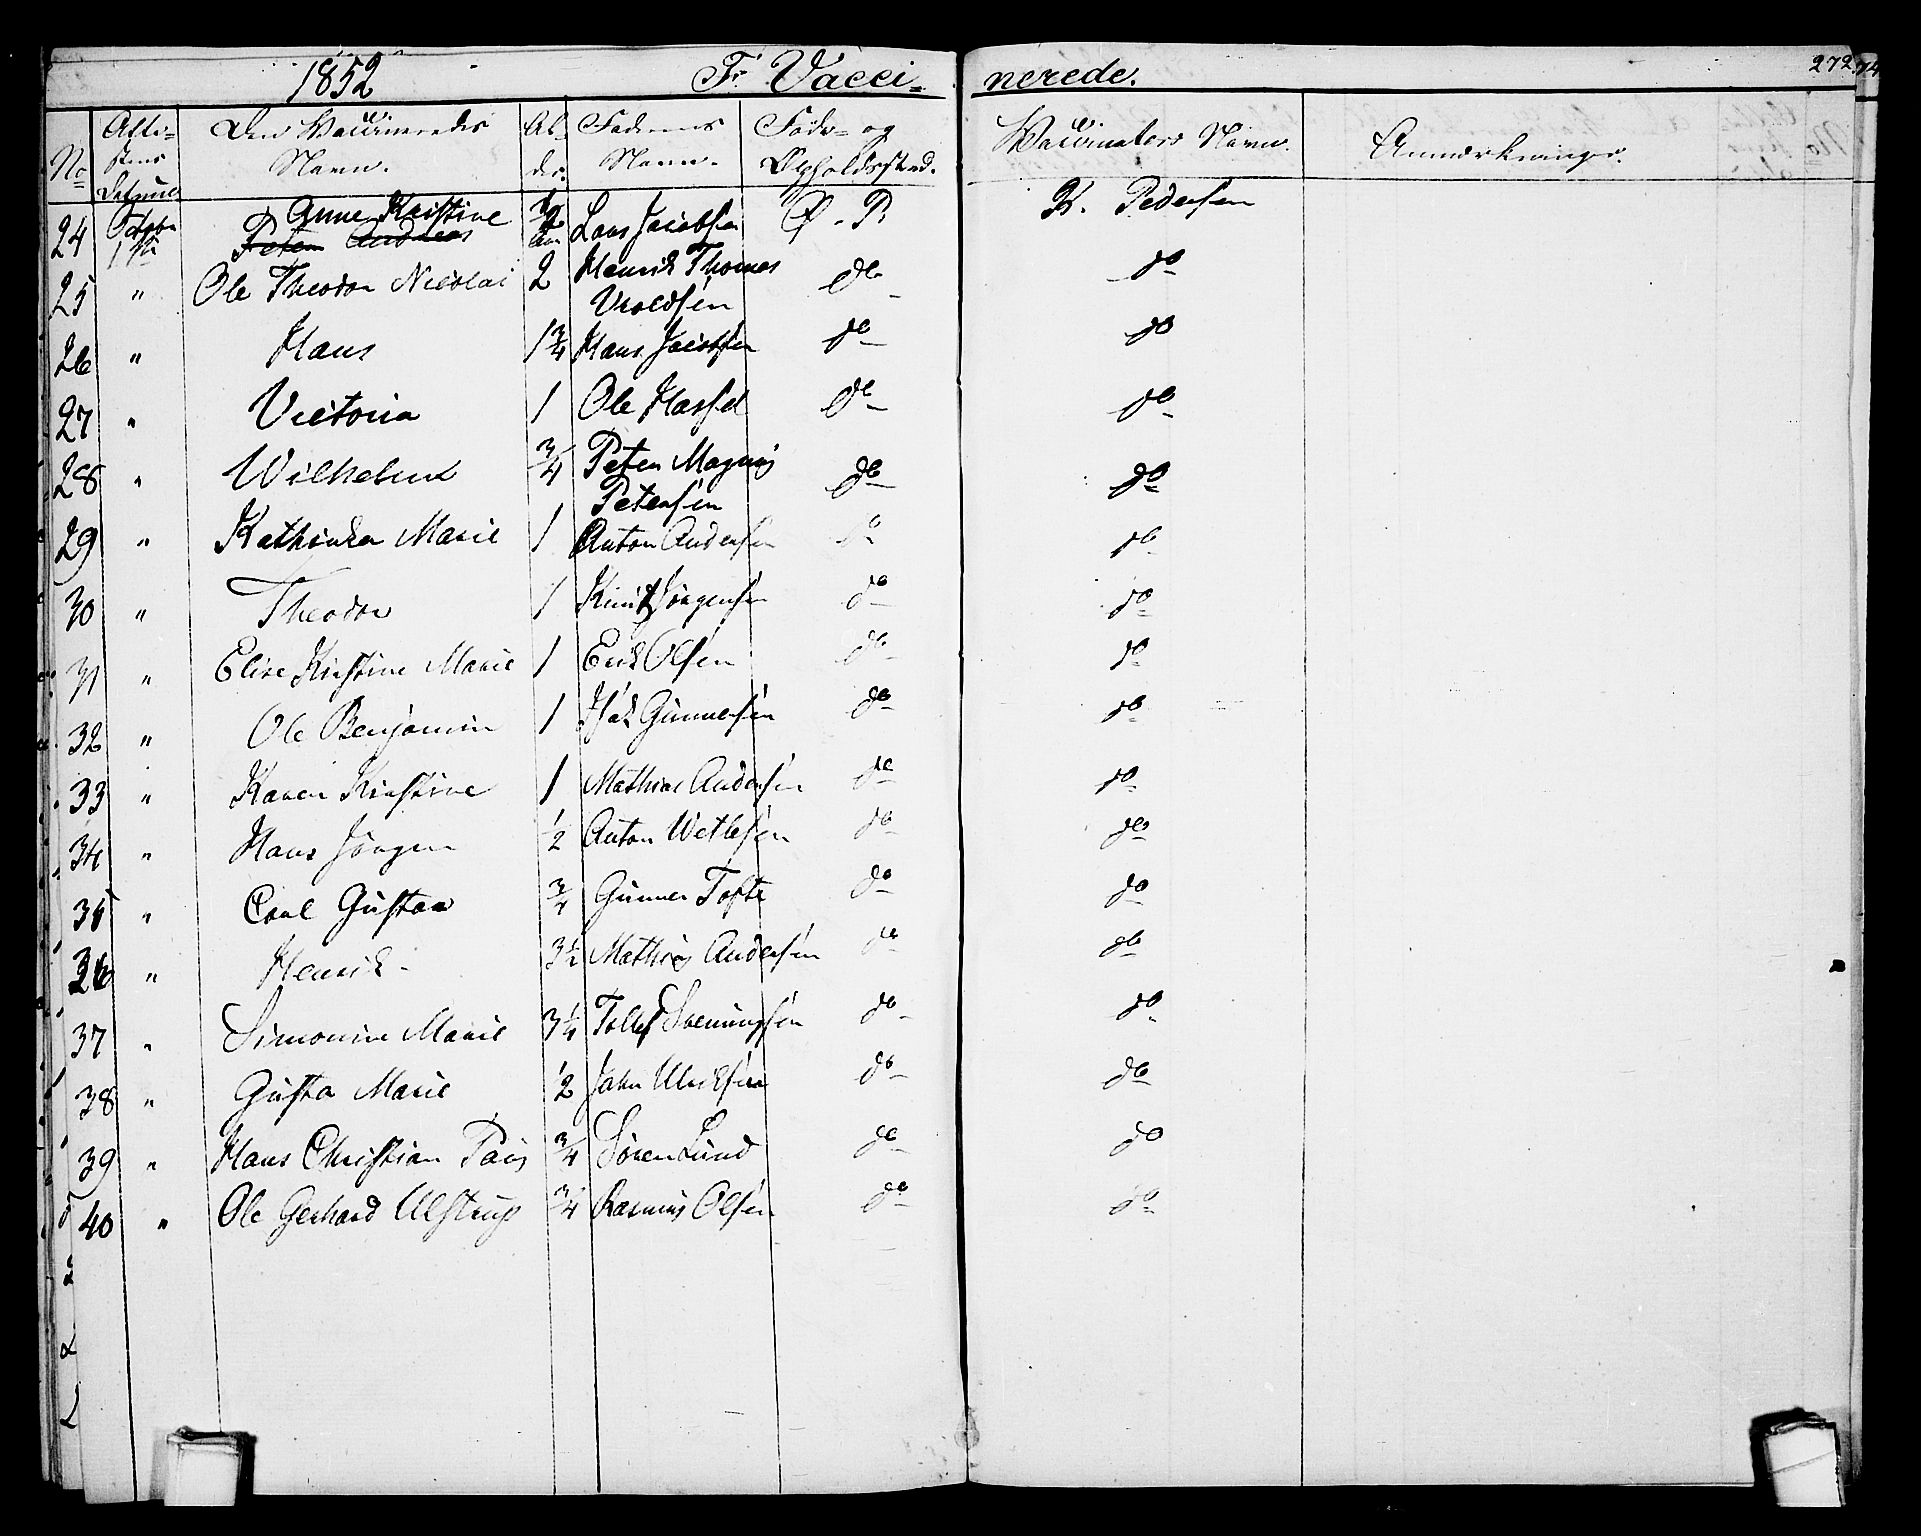 1852 F. Vacci- nerede. 272
No Atte- stens Datum Den Vaccineredes Navn. Al- der. Faderens Navn. Føde- og Opholdssted. Vaccinators Navn. Anmærkninger.
24 Octobr 1ste Anne Kristine ~~Peter Andreas~~ Lars Jacobsen Ø - R K. Pedersen
25 " Ole Theodor Nicolai 2 Henrik Thomas Vroldsen do do
26 " Hans 1 3/4 Hans Jacobsen do do
27 " Victoria 1 Ole Hassel do do
28 " Wilhelm 3/4 Peter Magnus Petersen do do
29 " Kathinka Marie 1 Anton Andersen do do
30 " Theodor 1 Knut Jörgensen do do
31 " Elise Kirstine Marie 1 Erik Olsen do do
32 " Ole Benjamin 1 Isak Gunnersen do do
33 " Karen Kirstine 1 Mathias Andersen do do
34 " Hans Jörgen 1/2 Anton Wetlesen do do
35 " Carl Gustav 3/4 Gunner Tofte do do
36 " Henrik 3 1/2 Mathias Andersen do do
37 " Simonine Marie 3 1/4 Tollef Svenningsen do do
38 " Gusta Marie 1/2 John Ulriksen do do
39 " Hans Christian Paus 3/4 Sören Lund do do
40 " Ole Gerhard Alstrup 3/4 Rasmus Olsen do do